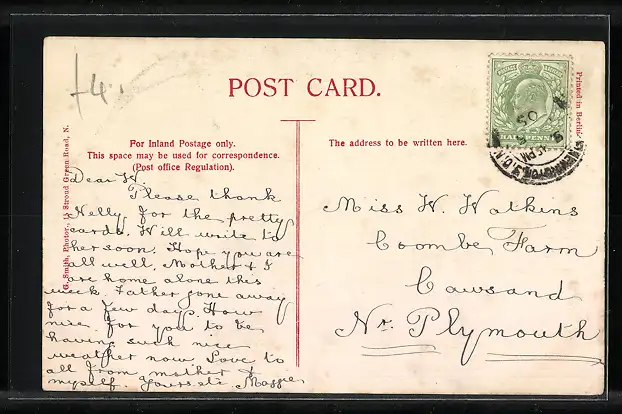 £4.
POST CARD.
For Inland Postage only.
This space may be used for correspondence.
(Post office Regulation).
The address to be written here.
G. Smith, Photor., 15 Stroud Green Road, N.
Printed in Berlin
HALFPENNY
Dear W.
Please thank
Nelly for the pretty
cards. Will write to
her soon. Hope you are
all well. Mother & I
are home alone this
week. Father gone away
for a few days. How
nice for you to be
having such nice
weather now. Love to
all from mother &
myself. Yours etc Maggie
Miss W. Watkins
Coombe Farm
Cawsand
Nr. Plymouth